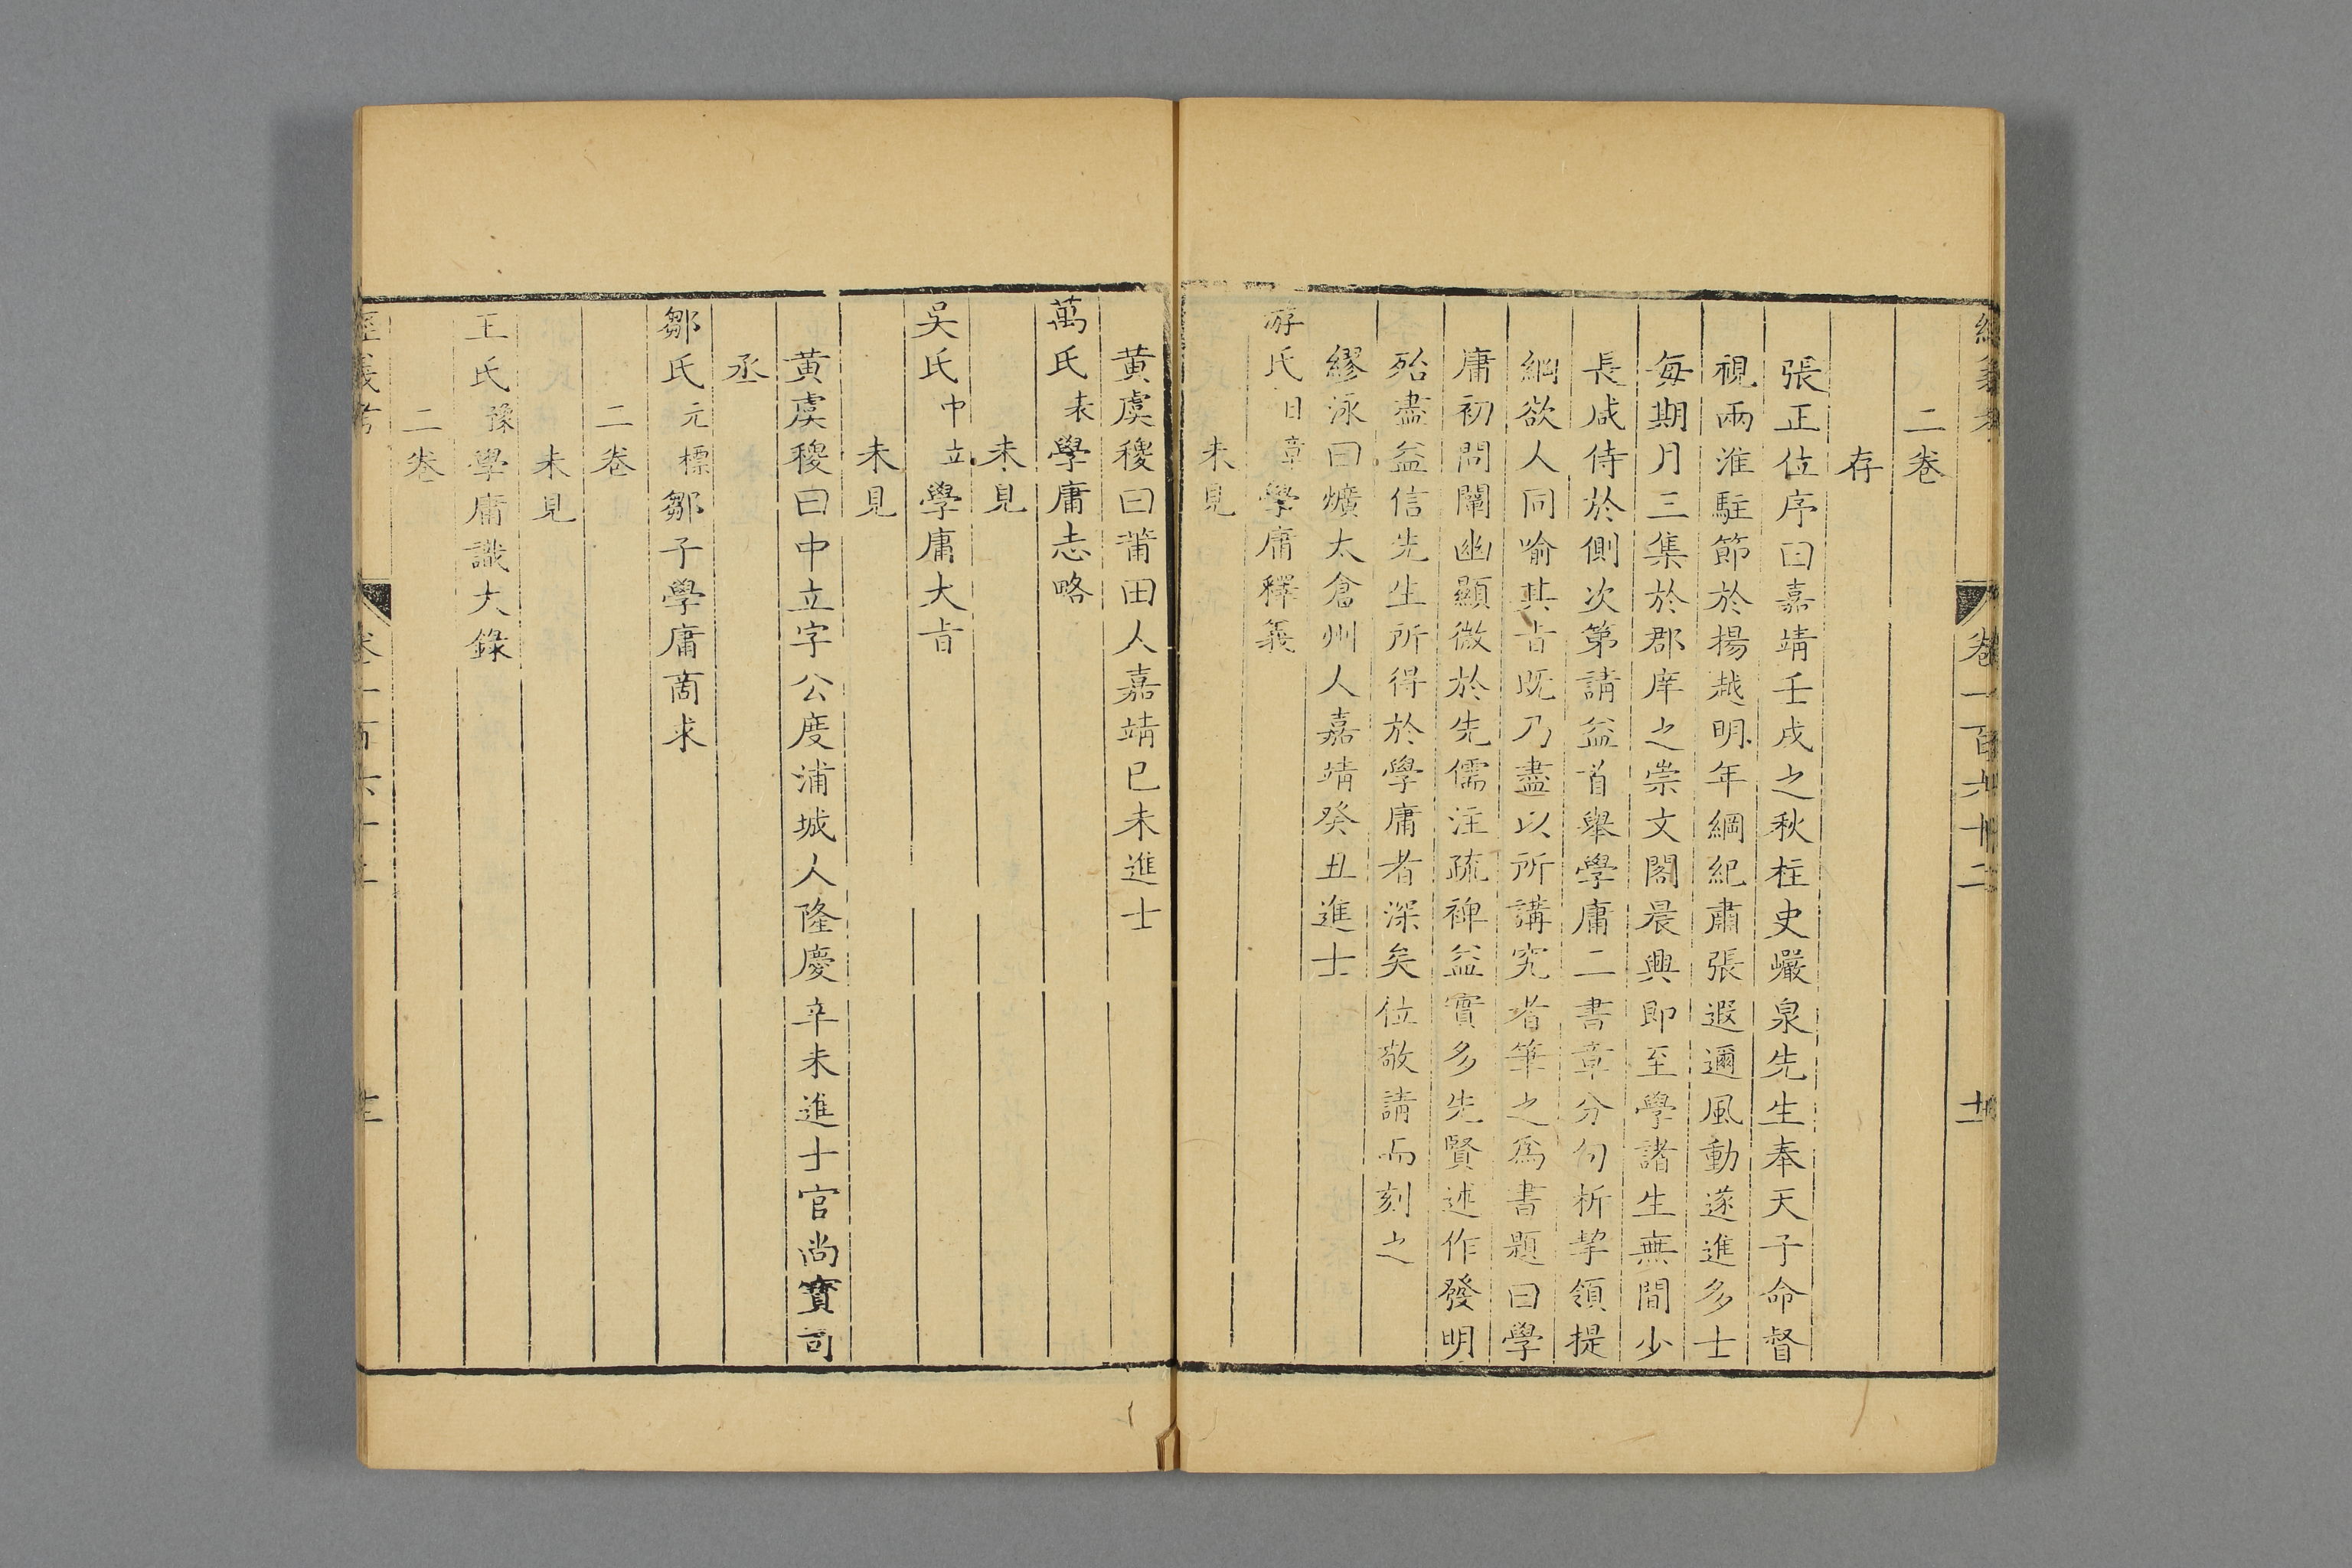 經義考 卷一百六十二 十
二卷
存
張正位序曰嘉靖壬戌之秋柱史巗泉先生奉天子命督
視兩淮駐節於揚越明年綱紀肅張遐邇風動遂進多士
每期月三集於郡庠之崇文閣晨興即至學諸生無間少
長咸侍於側次第請益首舉學庸二書章分句析挈領提
綱欲人同喻其旨既乃盡以所講究者筆之為書題曰學
庸初問闡幽顯微於先儒注疏裨益實多先賢述作發明
殆盡益信先生所得於學庸者深矣位敬請而刻之
繆泳曰爌太倉州人嘉靖癸丑進士
游氏日章學庸釋義
未見
黃虞稷曰莆田人嘉靖己未進士
萬氏表學庸志略
未見
吳氏中立學庸大旨
未見
黃虞稷曰中立字公度浦城人隆慶辛未進士官尚寶司
丞
鄒氏元標鄒子學庸商求
二卷
未見
王氏豫學庸識大錄
二卷
經義考